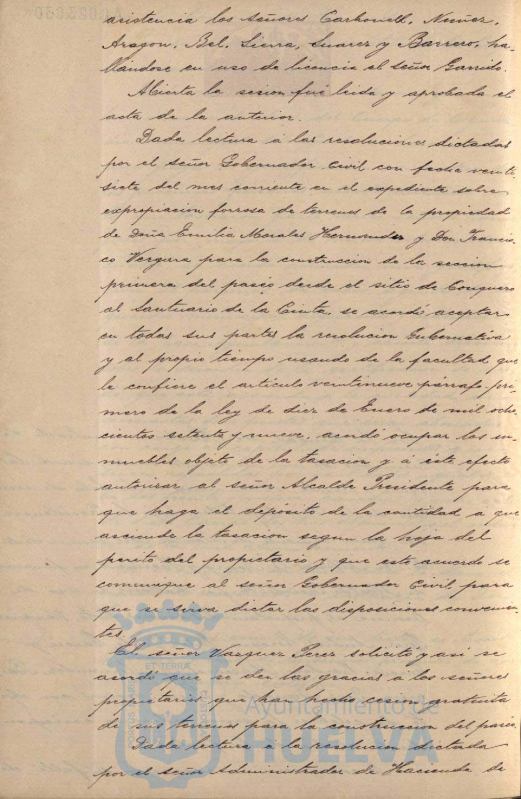 asistencia los Señores Carbonell, Nuñez,
Aragon, Bel, Sierra, Suarez y Barrero, ha-
llándose en uso de licencia el señor Garrido.
Abierta la sesion fué leida y aprobada el
acta de la anterior.
Dada lectura á las resoluciones dictadas
por el señor Gobernador Civil con fecha veinti
siete del mes corriente en el expediente sobre
expropiacion forzosa de terrenos de la propiedad
de Doña Emilia Morales Hernandez y Don Francis
co Vergara para la construccion de la seccion
primera del paseo desde el sitio de Conquero
al Santuario de la Cinta, se acordó aceptar
en todas sus partes la resolucion Gubernativa
y al propio tiempo usando de la facultad que
le confiere el artículo veintinueve párrafo pri-
mero de la ley de diez de Enero de mil ocho
cientos setenta y nueve, acordó ocupar los in-
muebles objeto de la tasacion y á este efecto
autorizar al señor Alcalde Presidente para
que haga el depósito de la cantidad a que
asciende la tasacion segun la hoja del
perito del propietario y que este acuerdo se
comunique al señor Gobernador Civil para
que se sirva dictar las disposiciones convenien-
tes.
El señor Vazquez Perez solicitó y asi se
acordó que se den las gracias á los señores
propietarios que han hecho cesion gratuita
de sus terrenos para la construccion del paseo.
Dada lectura á la resolucion dictada
por el señor Administrador de Hacienda de
Ayuntamiento de
HUELVA